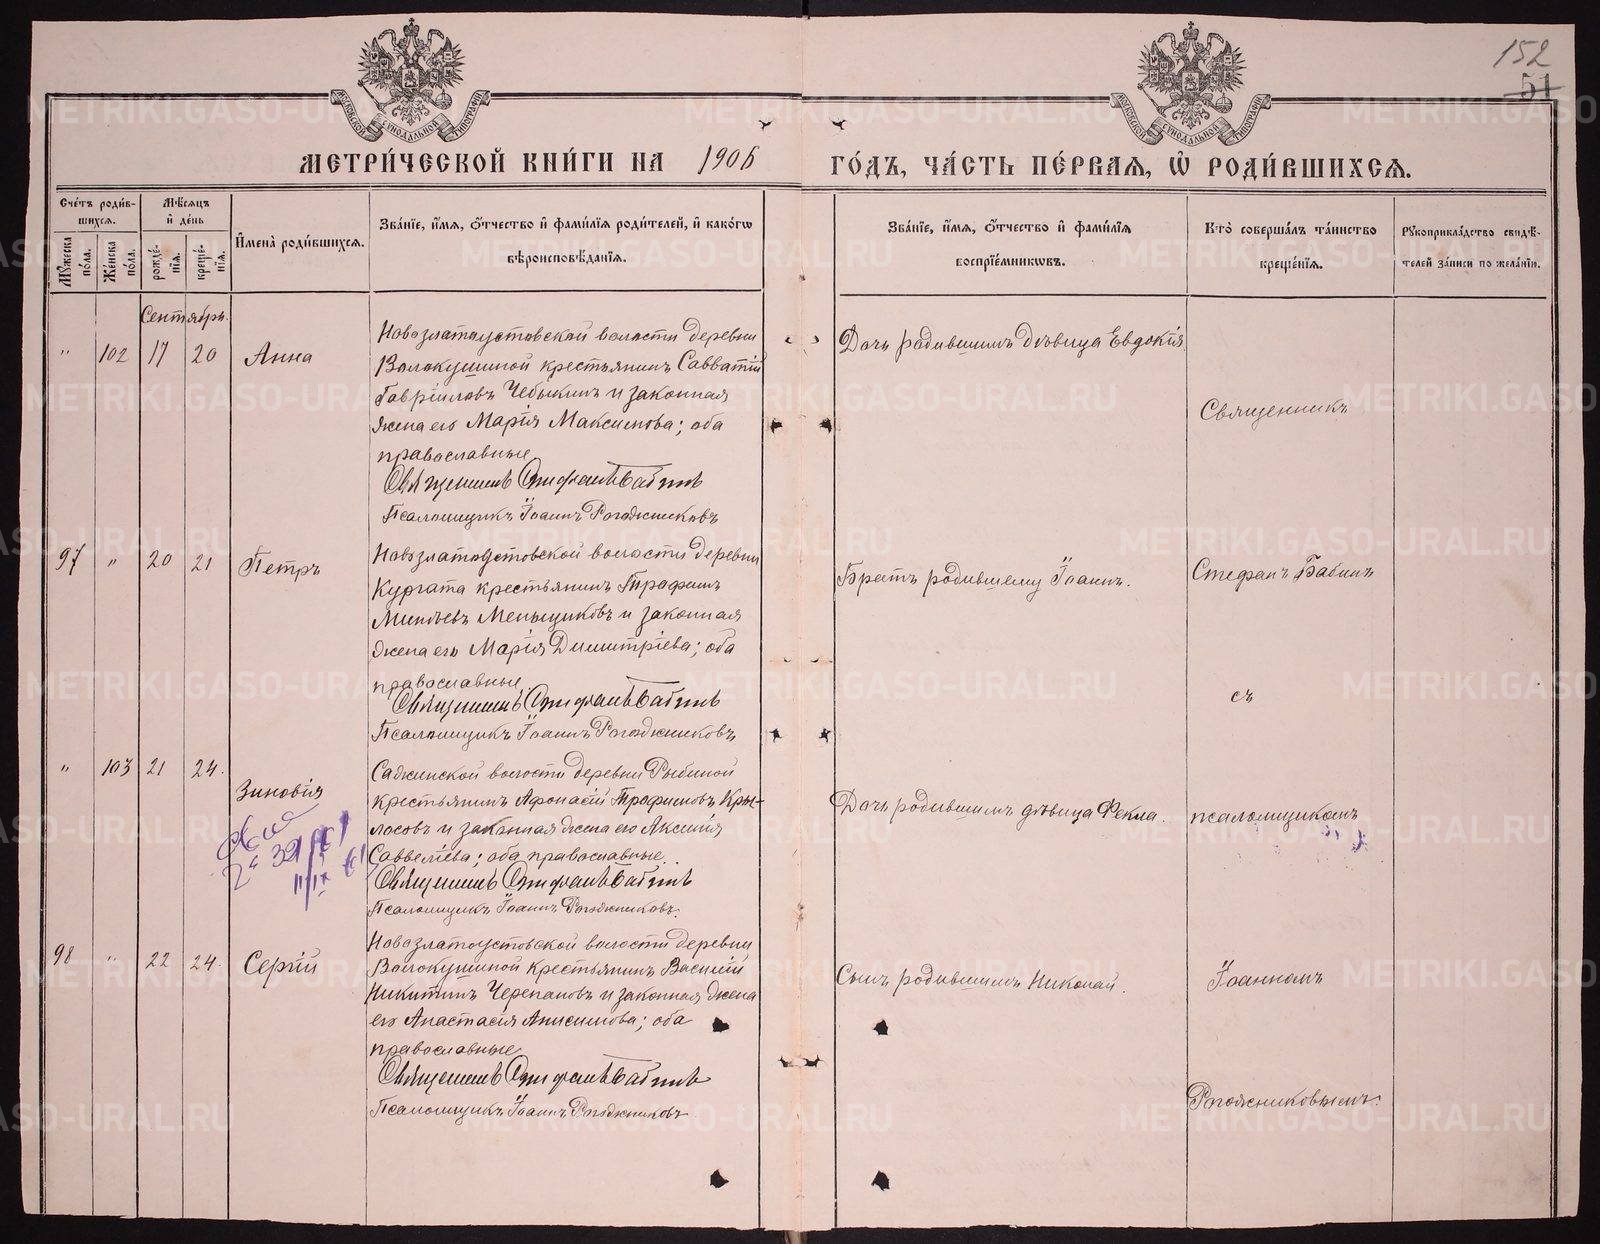 152
51
МОСКОВСКОЙ СѴНОДАЛЬНОЙ ТИПОГРАФІИ
МОСКОВСКОЙ СѴНОДАЛЬНОЙ ТИПОГРАФІИ
МЕТРИ́ЧЕСКОЙ КНИ́ГИ НА 1906 ГО́ДЪ, ЧА́СТЬ ПЕ́РВАѦ, Ѡ҆ РОДИ́ВШИХСѦ.
Сче́тъ роди́в-
шихсѧ.
Мѣ́сѧцъ
и҆ де́нь
Мꙋ́жеска по́ла.
Же́нска по́ла.
рожде́-
нїѧ.
креще́-
нїѧ.
И҆мена̀ роди́вшихсѧ.
Зва́нїе, и҆́мѧ, ѻ҆́тчество и҆ фами́лїѧ роди́телей, и҆ како́гѡ
вѣроисповѣ́данїѧ.
Зва́нїе, и҆́мѧ, ѻ҆́тчество и҆ фами́лїѧ
воспрїе́мникѡвъ.
Кто̀ соверша́лъ та́инство
креще́нїѧ.
Рꙋкоприкла́дство свидѣ́-
телей за́писи по жела́нїю.
Сентябрь.
" 102 17 20 Анна
Новозлатоустовской волости деревни
Волокушиной крестьянинъ Савватій
Гавріиловъ Чебыкинъ и законная
жена его Марія Максимова; оба
православные
Священникъ Стефанъ Бабинъ
Псаломщикъ Іоаннъ Рогожниковъ
Дочь родившимъ дѣвица Евдокія
Священникъ
97 " 20 21 Петръ
Новозлатоустовской волости деревни
Кургата крестьянинъ Трофимъ
Миньевъ Меньщиковъ и законная
жена его Марія Димитріева; оба
православные
Священникъ Стефанъ Бабинъ
Псаломщикъ Іоаннъ Рогожниковъ
Братъ родившему Іоаннъ.
Стефанъ Бабинъ
съ
" 103 21 24. Зиновія
Сажинской волости деревни Рыбиной
крестьянинъ Афонасій Трофимовъ Кры-
лосовъ и законная жена его Аксинія
Саввеліева; оба православные.
Священникъ Стефанъ Бабинъ
Псаломщикъ Іоаннъ Рогожниковъ.
Дочь родившимъ дѣвица Фекла.
псаломщикомъ
98 " 22 24. Сергій
Новозлатоустовской волости деревни
Волокушиной крестьянинъ Василій
Никитинъ Черепановъ и законная жена
его Анастасія Анисимова; оба
православные
Священникъ Стефанъ Бабинъ
Псаломщикъ Іоаннъ Рогожниковъ
Сынъ родившимъ Николай.
Іоанномъ
Рогожниковымъ.
METRIKI.GASO-URAL.RU